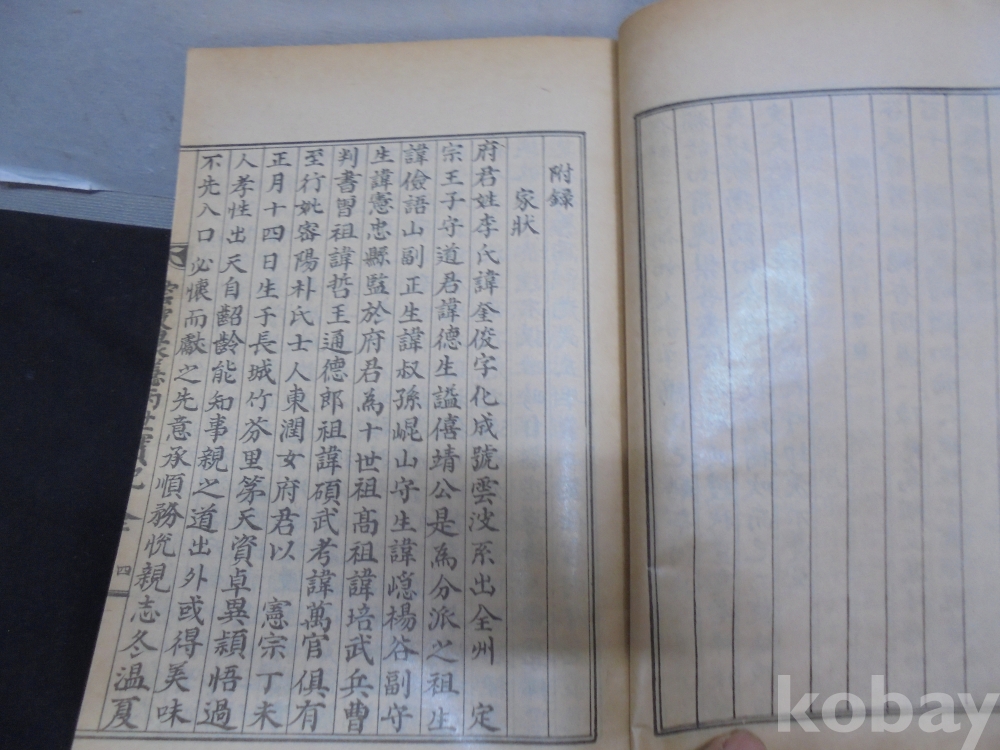 附録
家狀
府君姓李氏諱奎俊字化成號雲波系出全州 定
宗王子守道君諱德生謚僖靖公是為分派之祖生
諱儉語山副正生諱叔孫崐山守生諱嶾楊谷副守
生諱憲忠縣監於府君為十世祖高祖諱培武兵曹
判書曾祖諱哲王通德郎祖諱碩武考諱萬官俱有
至行妣密陽朴氏士人東潤女府君以 憲宗丁未
正月十四日生于長城竹芬里第天資卓異穎悟過
人孝性出天自齠齡能知事親之道出外或得美味
不先入口必懷而獻之先意承順務悅親志冬溫夏
四
kobay